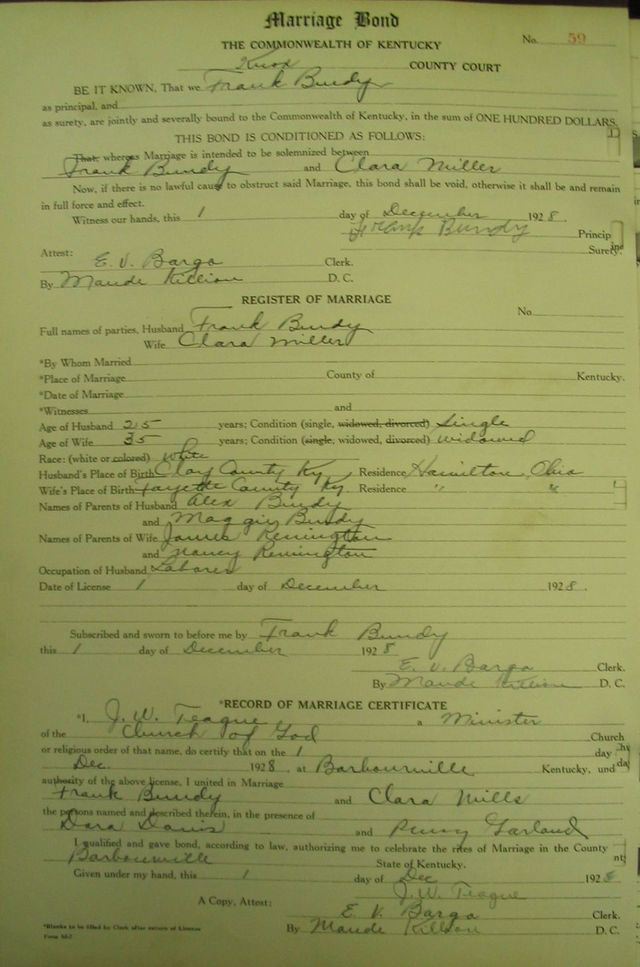 Marriage Bond
No. 59
THE COMMONWEALTH OF KENTUCKY
Knox COUNTY COURT
BE IT KNOWN, That we Frank Bundy
as principal, and
as surety, are jointly and severally bound to the Commonwealth of Kentucky, in the sum of ONE HUNDRED DOLLARS.
THIS BOND IS CONDITIONED AS FOLLOWS:
That, whereas Marriage is intended to be solemnized between
Frank Bundy and Clara Miller
Now, if there is no lawful cause to obstruct said Marriage, this bond shall be void, otherwise it shall be and remain
in full force and effect.
Witness our hands, this 1 day of December 1928.
Frank Bundy Princip
Surety.
Attest:
E. V. Bargo Clerk.
By Maude Killion D. C.
REGISTER OF MARRIAGE
No.
Full names of parties, Husband Frank Bundy
Wife Clara Miller
*By Whom Married
*Place of Marriage County of Kentucky.
*Date of Marriage
*Witnesses and
Age of Husband 25 years; Condition (single, widowed, divorced) Single
Age of Wife 35 years; Condition (single, widowed, divorced) widowed
Race: (white or colored) White
Husband's Place of Birth Clay County Ky Residence Hamilton, Ohio
Wife's Place of Birth Fayette County Ky. Residence " "
Names of Parents of Husband Alex Bundy
and Maggie Bundy
Names of Parents of Wife James Remington
and Nancy Remington
Occupation of Husband Laborer
Date of License 1 day of December 1928.
Subscribed and sworn to before me by Frank Bundy
this 1 day of December 1928
E. V. Bargo Clerk.
By Maude Killion D. C.
*RECORD OF MARRIAGE CERTIFICATE
*I, J. W. Teague a Minister
of the Church of God Church
or religious order of that name, do certify that on the 1 day
Dec. 1928, at Barbourville Kentucky, und
authority of the above license, I united in Marriage
Frank Bundy and Clara Mills
the persons named and described therein, in the presence of
Dora Davis and Penny Garland
I qualified and gave bond, according to law, authorizing me to celebrate the rites of Marriage in the County
Barbourville State of Kentucky.
Given under my hand, this 1 day of Dec 1928
J. W. Teague
A Copy, Attest:
E. V. Bargo Clerk.
By Maude Killion D. C.
*Blanks to be filled by Clerk after return of License